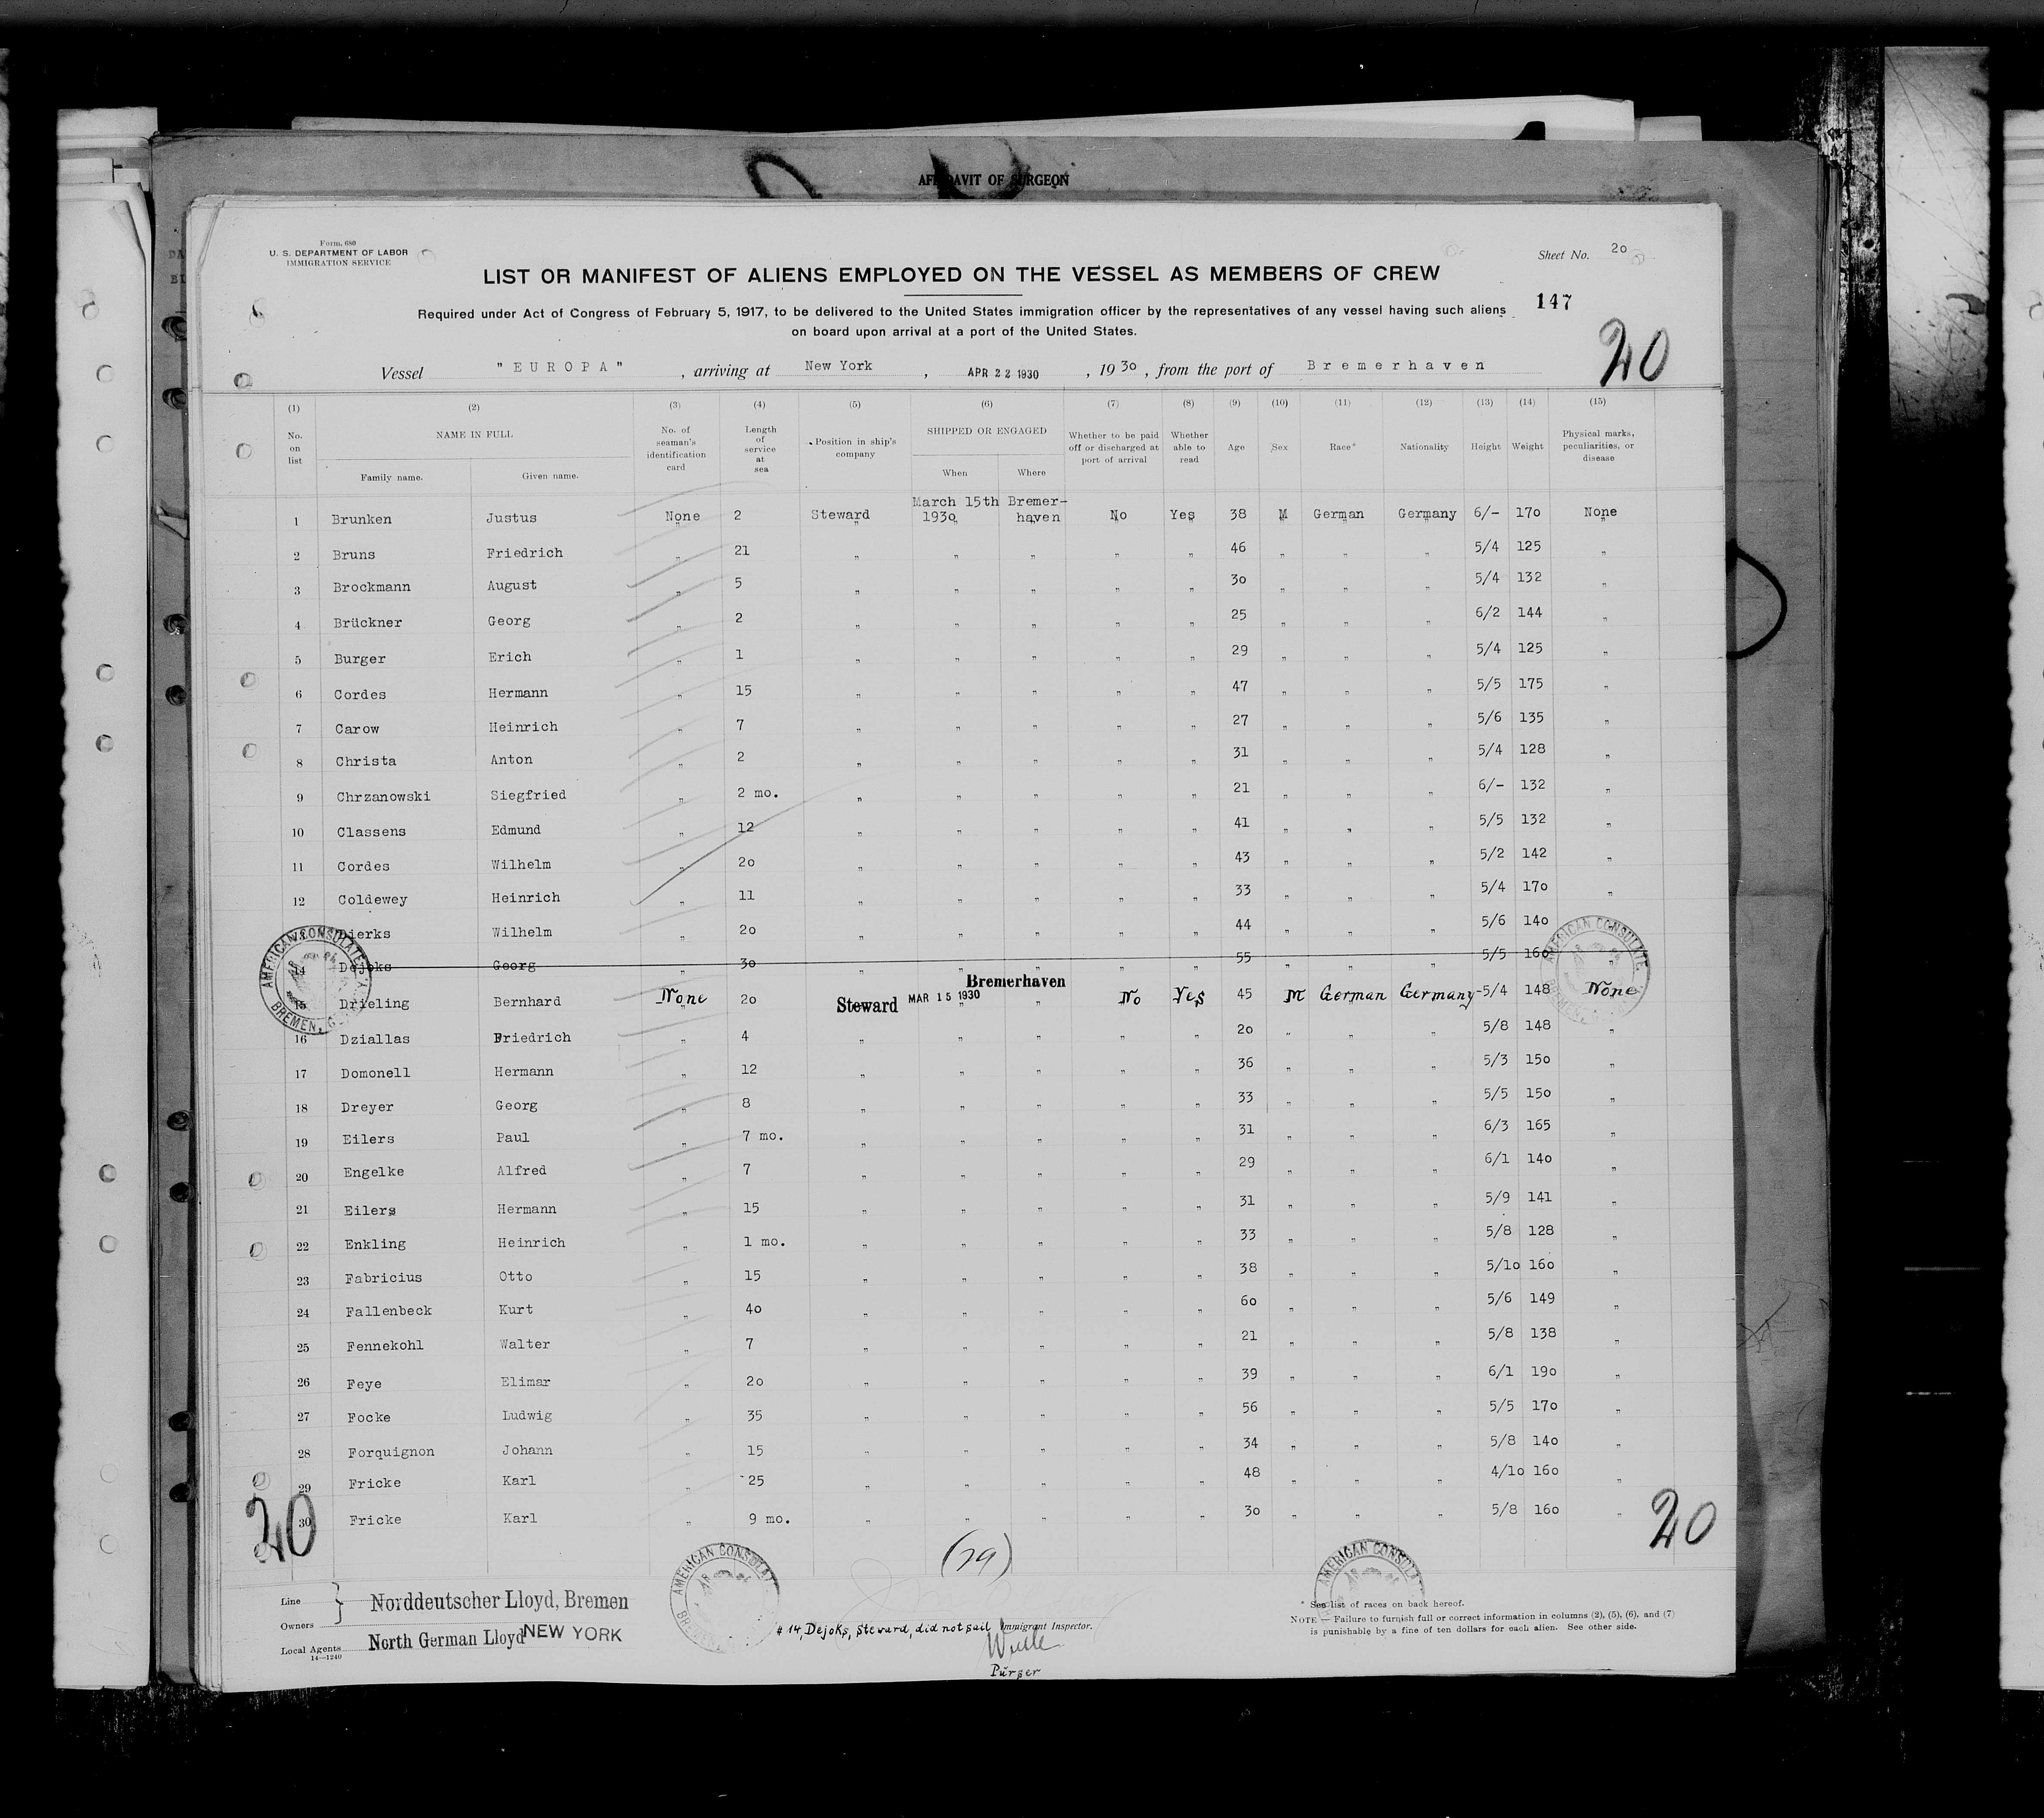 AFFIDAVIT OF SURGEON
Form. 680
U. S. DEPARTMENT OF LABOR
IMMIGRATION SERVICE
Sheet No. 20
LIST OR MANIFEST OF ALIENS EMPLOYED ON THE VESSEL AS MEMBERS OF CREW
147
Required under Act of Congress of February 5, 1917, to be delivered to the United States immigration officer by the representatives of any vessel having such aliens
on board upon arrival at a port of the United States.
20
Vessel "EUROPA", arriving at New York, APR 22 1930, 1930, from the port of Bremerhaven
(1) (2) (3) (4) (5) (6) (7) (8) (9) (10) (11) (12) (13) (14) (15)
No. on list NAME IN FULL Family name. Given name. No. of seaman's identification card Length of service at sea Position in ship's company SHIPPED OR ENGAGED When Where Whether to be paid off or discharged at port of arrival Whether able to read Age Sex Race* Nationality Height Weight Physical marks, peculiarities, or disease
1 Brunken Justus None 2 Steward March 15th 1930 Bremer-haven No Yes 38 M German Germany 6/- 170 None
2 Bruns Friedrich " 21 " " " " " 46 " " " 5/4 125 "
3 Brockmann August " 5 " " " " " 30 " " " 5/4 132 "
4 Brückner Georg " 2 " " " " " 25 " " " 6/2 144 "
5 Burger Erich " 1 " " " " " 29 " " " 5/4 125 "
6 Cordes Hermann " 15 " " " " " 47 " " " 5/5 175 "
7 Carow Heinrich " 7 " " " " " 27 " " " 5/6 135 "
8 Christa Anton " 2 " " " " " 31 " " " 5/4 128 "
9 Chrzanowski Siegfried " 2 mo. " " " " " 21 " " " 6/- 132 "
10 Classens Edmund " 12 " " " " " 41 " " " 5/5 132 "
11 Cordes Wilhelm " 20 " " " " " 43 " " " 5/2 142 "
12 Coldewey Heinrich " 11 " " " " " 33 " " " 5/4 170 "
13 Dierks Wilhelm " 20 " " " " " 44 " " " 5/6 140 "
14 Dejoks Georg " 30 " " " " " 55 " " " 5/5 160 "
15 Drieling Bernhard None 20 Steward MAR 15 1930 Bremerhaven No Yes 45 M German Germany 5/4 148 None
16 Dziallas Friedrich " 4 " " " " " 20 " " " 5/8 148 "
17 Domonell Hermann " 12 " " " " " 36 " " " 5/3 150 "
18 Dreyer Georg " 8 " " " " " 33 " " " 5/5 150 "
19 Eilers Paul " 7 mo. " " " " " 31 " " " 6/3 165 "
20 Engelke Alfred " 7 " " " " " 29 " " " 6/1 140 "
21 Eilers Hermann " 15 " " " " " 31 " " " 5/9 141 "
22 Enkling Heinrich " 1 mo. " " " " " 33 " " " 5/8 128 "
23 Fabricius Otto " 15 " " " " " 38 " " " 5/10 160 "
24 Fallenbeck Kurt " 40 " " " " " 60 " " " 5/6 149 "
25 Fennekohl Walter " 7 " " " " " 21 " " " 5/8 138 "
26 Feye Elimar " 20 " " " " " 39 " " " 6/1 190 "
27 Focke Ludwig " 35 " " " " " 56 " " " 5/5 170 "
28 Forquignon Johann " 15 " " " " " 34 " " " 5/8 140 "
29 Fricke Karl " 25 " " " " " 48 " " " 4/10 160 "
30 Fricke Karl " 9 mo. " " " " " 30 " " " 5/8 160 "
20
20
(29)
AMERICAN CONSULATE
BREMEN, G
AMERICAN CONSULATE
AMERICAN CONSULAT
AMERICAN CONSULA
Line
Owners
Norddeutscher Lloyd, Bremen
Local Agents North German Lloyd NEW YORK
14—1240
# 14, Dejoks, steward, did not sail Immigrant Inspector.
Purser
* See list of races on back hereof.
NOTE — Failure to furnish full or correct information in columns (2), (5), (6), and (7)
is punishable by a fine of ten dollars for each alien. See other side.